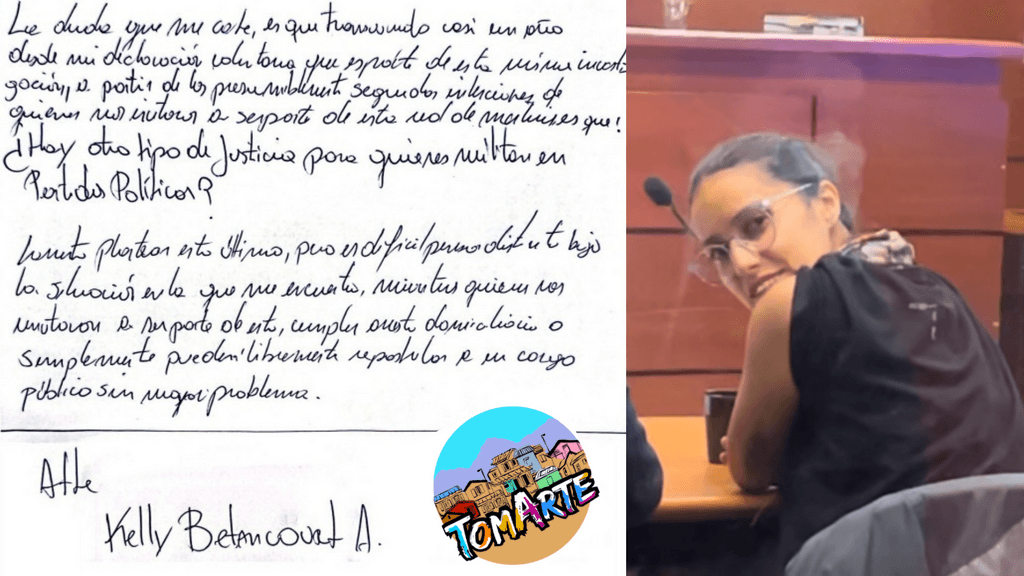 La duda que me cabe, es que transcurrido casi un año
desde mi declaración voluntaria que es parte de esta misma investi
gación, a partir de las presumiblemente segundas intenciones de
quienes nos invitaron a ser parte de esta red de
¿Hay otro tipo de Justicia para quienes militan en
Partidos Políticos?
Lamento plantear esto último, pero es difícil pensar distinto bajo
la situación en la que me encuentro, mientras quienes nos
invitaron a ser parte de esto, cumplen arresto domiciliario o
simplemente pueden libremente repostular a un cargo
público sin mayor problema.
Atte
Kelly Betancourt A.
TOMARTE